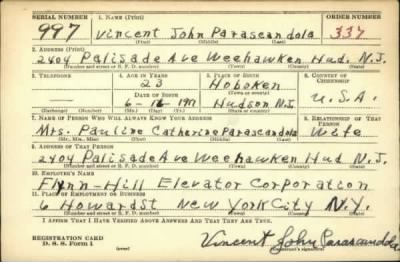 SERIAL NUMBER 1. NAME (Print) ORDER NUMBER
997 Vincent John Parascandola 337
(First) (Middle) (Last)
2. ADDRESS (Print)
2404 Palisade Ave Weehawken Hud. N.J.
(Number and street or R. F. D. number) (Town) (County) (State)
3. TELEPHONE 4. AGE IN YEARS 5. PLACE OF BIRTH 6. COUNTRY OF CITIZENSHIP
23 Hoboken
DATE OF BIRTH (Town or county)
6-16-1917 Hudson N.J. U.S.A.
(Exchange) (Number) (Mo.) (Day) (Yr.) (State or country)
7. NAME OF PERSON WHO WILL ALWAYS KNOW YOUR ADDRESS 8. RELATIONSHIP OF THAT PERSON
Mrs. Pauline Catherine Parascandola Wife
(Mr., Mrs., Miss) (First) (Middle) (Last)
9. ADDRESS OF THAT PERSON
2404 Palisade Ave Weehawken Hud N.J.
(Number and street or R. F. D. number) (Town) (County) (State)
10. EMPLOYER'S NAME
Flynn-Hill Elevator Corporation
11. PLACE OF EMPLOYMENT OR BUSINESS
6 Howard St New York City N.Y.
(Number and street or R. F. D. number) (Town) (County) (State)
I AFFIRM THAT I HAVE VERIFIED ABOVE ANSWERS AND THAT THEY ARE TRUE.
REGISTRATION CARD
D. S. S. Form 1 (over) Vincent John Parascandola
(Registrant's signature)